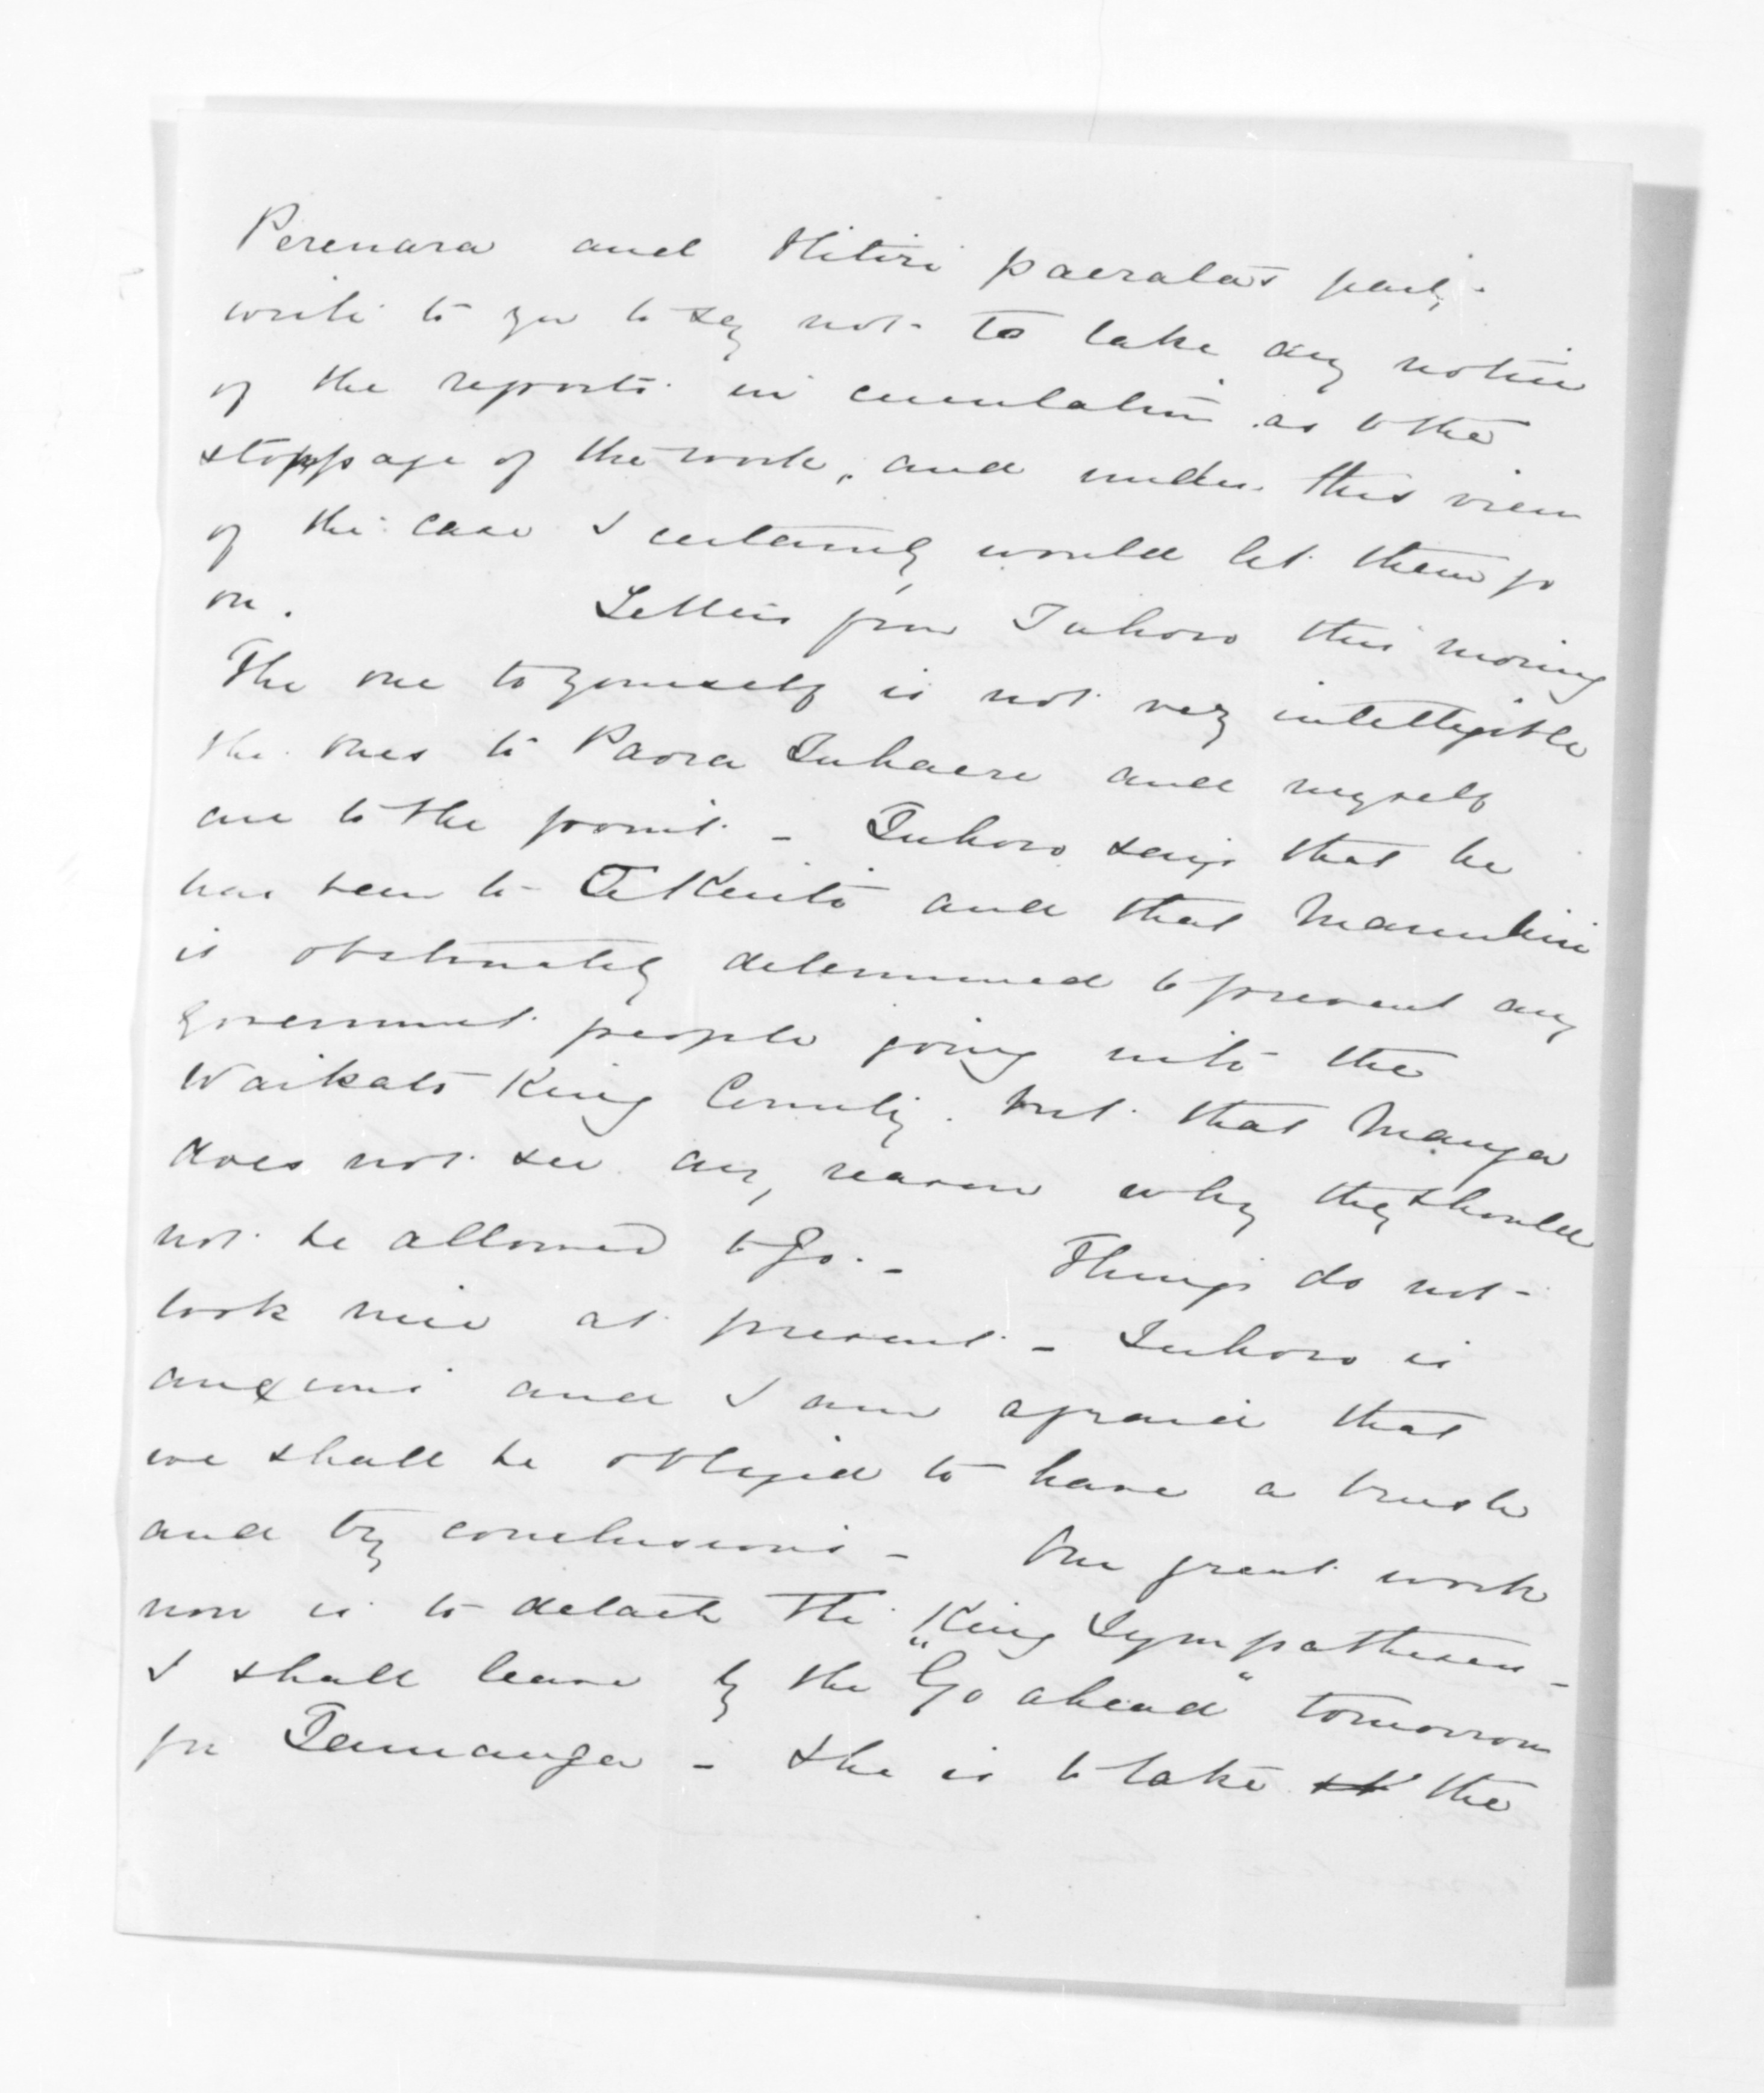 Perenara and Hitiri paerata's party
write to you to say not to take any notice
of the reports in circulation as to the
stoppage of the work, and under this view
of the case I certainly would let them go
on. Letters from Tuhoro this morning
The one to yourself is not very intelligible
the ones to Paora Tuhaere and myself
are to the point - Tuhoro says that he
has been to Te Kuiti and that Manuhiri
is obstinately determined to prevent any
Government people going into the
Waikato King Country. but that Manga
does not see any reason why they should
not be allowed to go. - Things do not
look nice at present - Tuhoro is
anxious and I am afraid that
we shall be obliged to have a brush
and try conclusions - Our great work
now is to detach the King Sympathisers -
I shall leave by the "Go ahead" tomorrow
for Tauranga - she is to take the